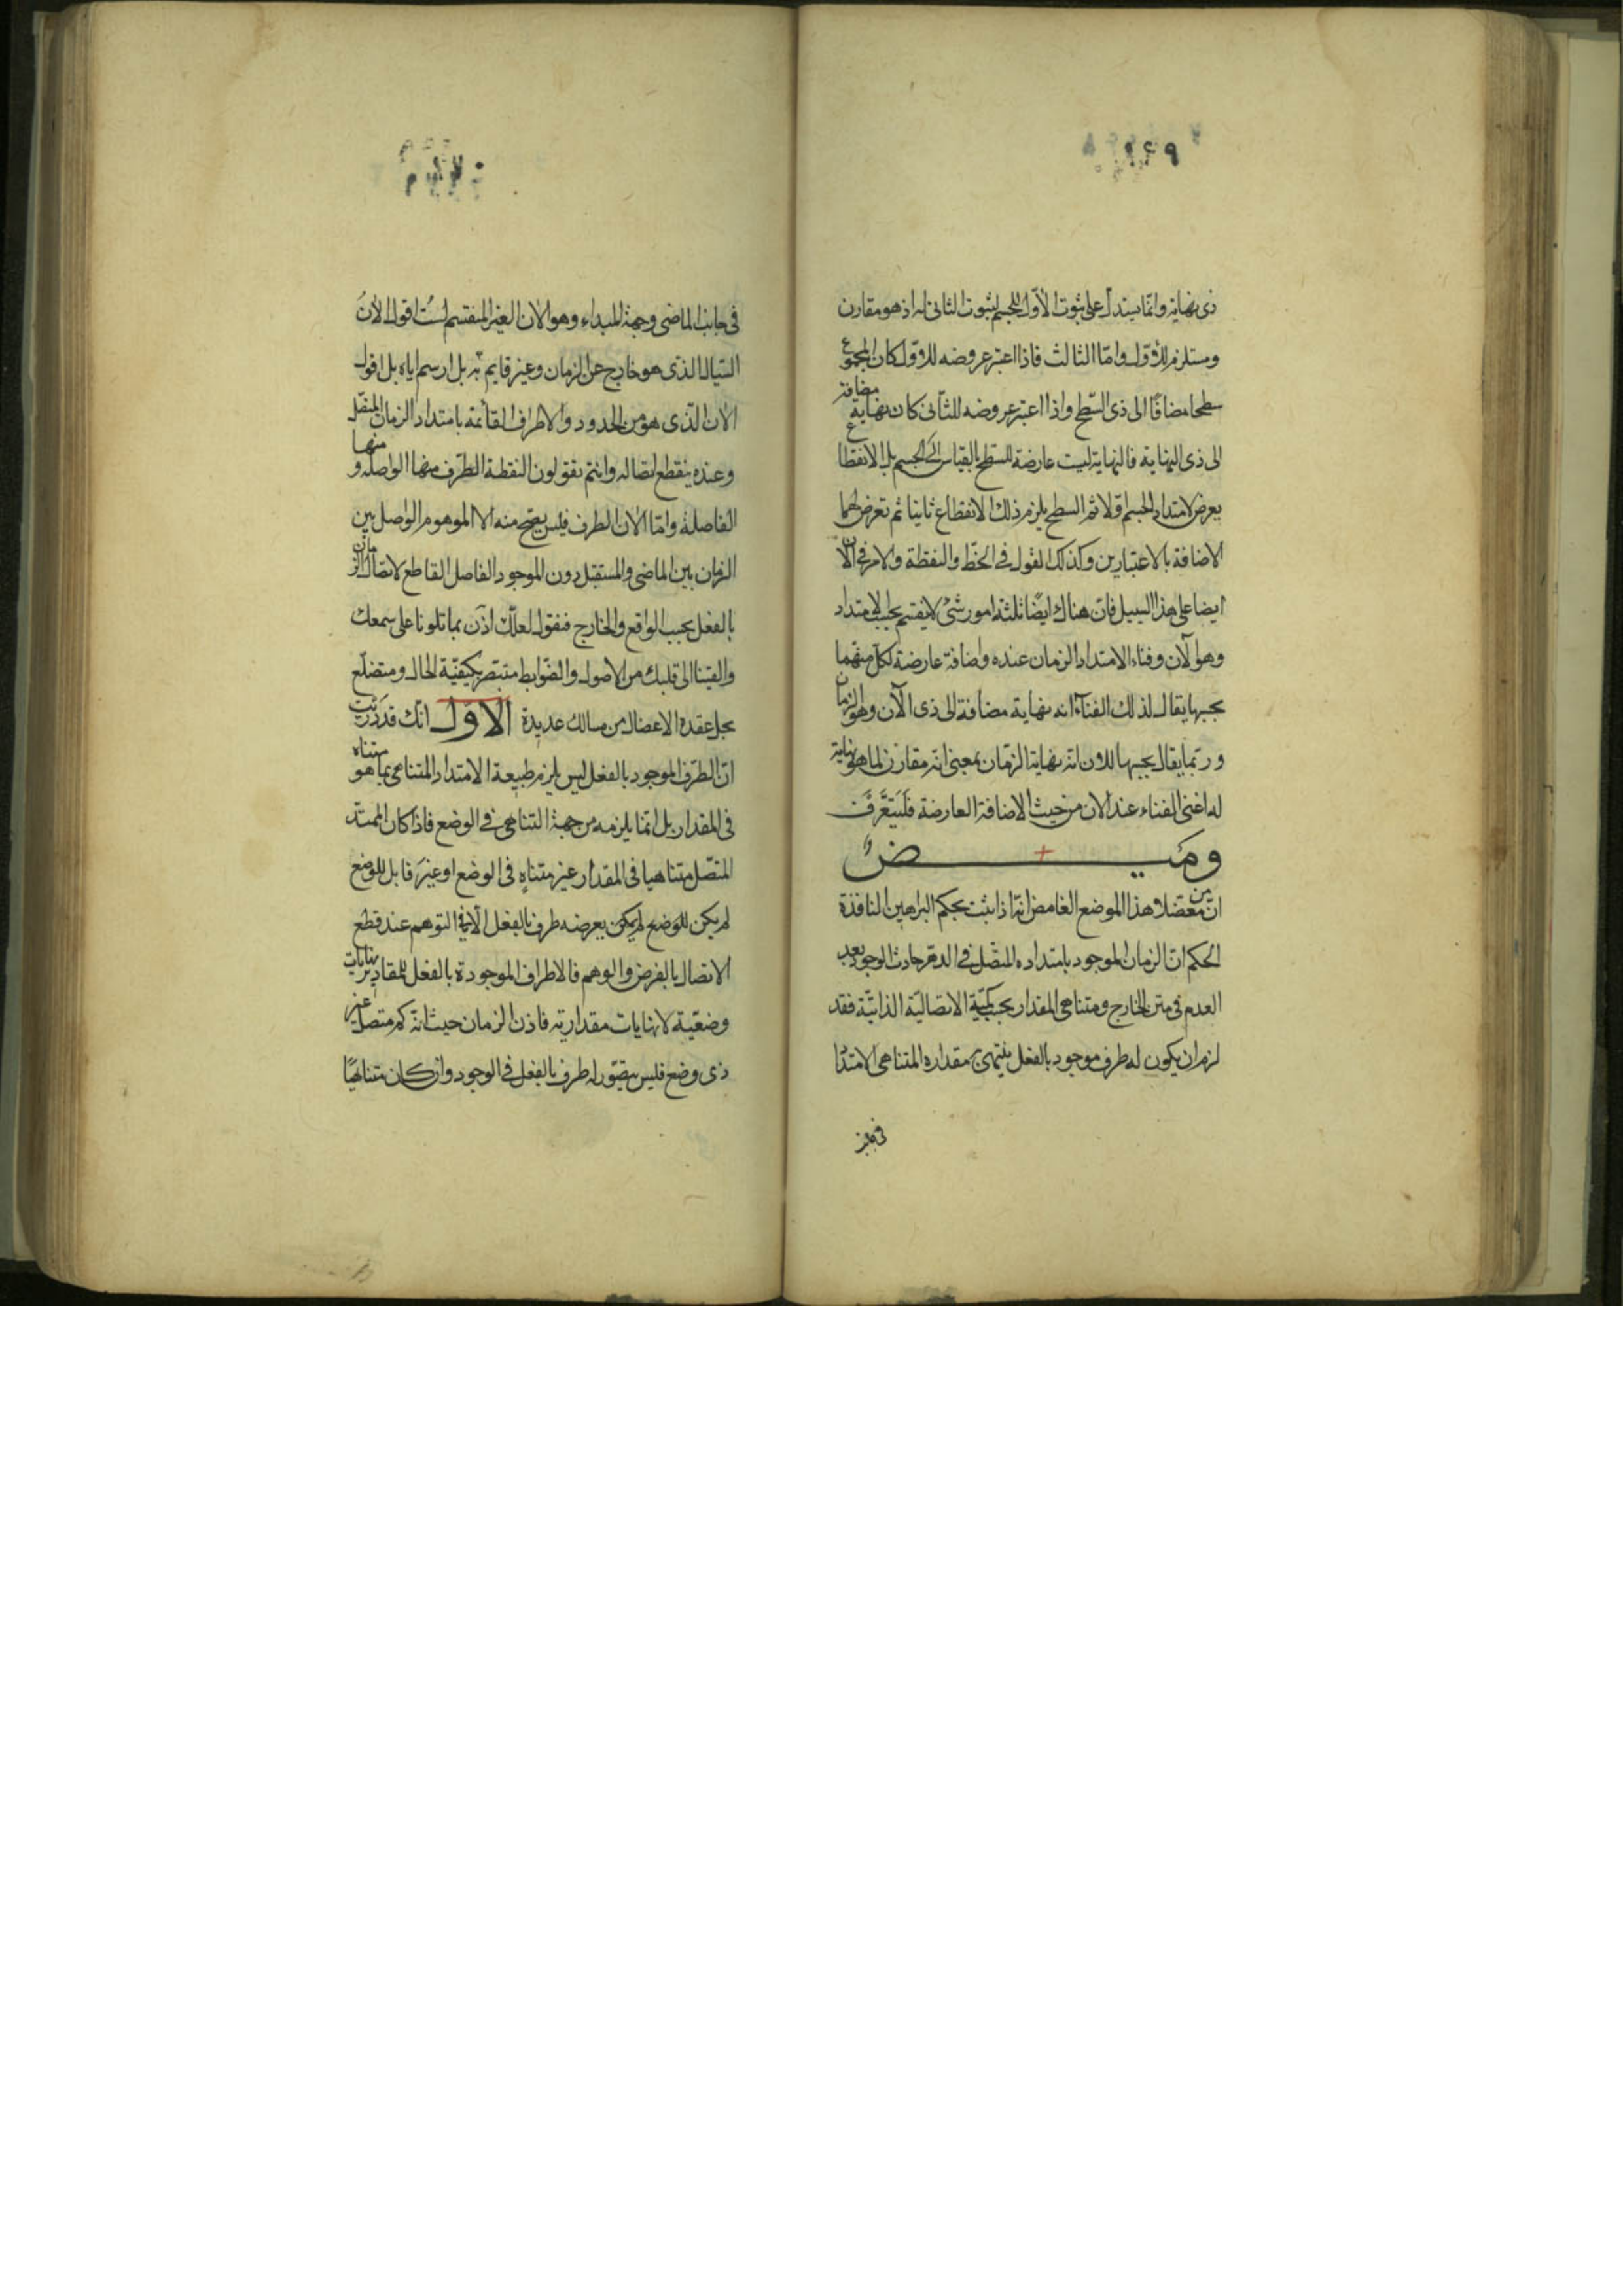 ذى نهاية وانما يستدل على ثبوت الاول للجسم بثبوت الثانى له اذ هو مقارن
ومستلزم للاول واما الثالث فاذا اعتبر عروضه للاول كان المجموع
سطحا مضافا الى ذى السطح واذا اعتبر عروضه للثانى كان نهاية مضافة
الى ذى النهاية فالنهاية ليست عارضة للسطح بالقياس الى الجسم بل الانقطاع
يعرض لامتداد الجسم اولا ثم السطح يلزم ذلك الانقطاع ثانيا ثم تعرض لهما
الاضافة بالاعتبارين وكذلك القول فى الخط والنقطة والامر فى الآن
ايضا على هذا السبيل فان هناك ايضا ثلثة امور شئ لا ينقسم بحسب الامتداد
وهو الآن وفناء الامتداد الزمان عنده واضافة عارضة لكل منهما
بحسبها يقال لذلك الفناء انه نهاية مضافة الى ذى الآن وهو الزمان
وربما يقال بحسبها للان انه نهاية الزمان بمعنى انه مقارن لما هو نهاية
له اعنى الفناء عند الان من حيث الاضافة العارضة فلتتعرف
وميض
ان من معضلات هذا الموضع الغامض انه اذا ثبت بحكم البراهين النافذة
الحكم ان الزمان الموجود بامتداده المتصل فى الدهر حادث الوجود بعد
العدم فى متن الخارج ومتناهى المقدار بحسب كمية الاتصالية الذاتية فقد
لزم ان يكون له طرف موجود بالفعل ينتهى به مقداره المتناهى الامتداد
فى جانب
فى جانب الماضى وجهة المبداء وهو الان الغير المنقسم لست اقول الان
السيال الذى هو خارج عن الزمان وغير قايم به بل راسم اياه بل اقول
الان الذى هو من الحدود والاطراف القائمة بامتداد الزمان المتصل
وعنده ينقطع اتصاله وانتم تقولون النقطة الطرف منها الواصلة ومنها
الفاصلة واما الان الطرف فليس يصح منه الا الموهوم الواصل بين
الزمان بين الماضى والمستقبل دون الموجود الفاصل القاطع لاتصال الزمان
بالفعل بحسب الواقع والخارج فنقول لعلك اذن بما تلونا على سمعك
والقينا الى قلبك من الاصول والضوابط متبصر بكيفية الحال ومتضلع
بحل عقدة الاعضال من مسالك عديدة الاول انك قد دريت
ان الطرف الموجود بالفعل ليس يلزم طبيعة الامتداد المتناهى بما هو متناه
فى المقدار بل انما يلزمه من جهة التناهى فى الوضع فاذا كان الممتد
المتصل متناهيا فى المقدار غير متناه فى الوضع او غير قابل للوضع
لم يكن للوضع لم يمكن يعرضه طرف بالفعل الا فى التوهم عند قطع
الاتصال بالفرض والوهم فالاطراف الموجودة بالفعل للمقادير نهايات
وضعية لا نهايات مقدارية فاذن الزمان حيث انه كم متصل غير
ذى وضع فليس يتصور له طرف بالفعل فى الوجود وان كان متناهيا